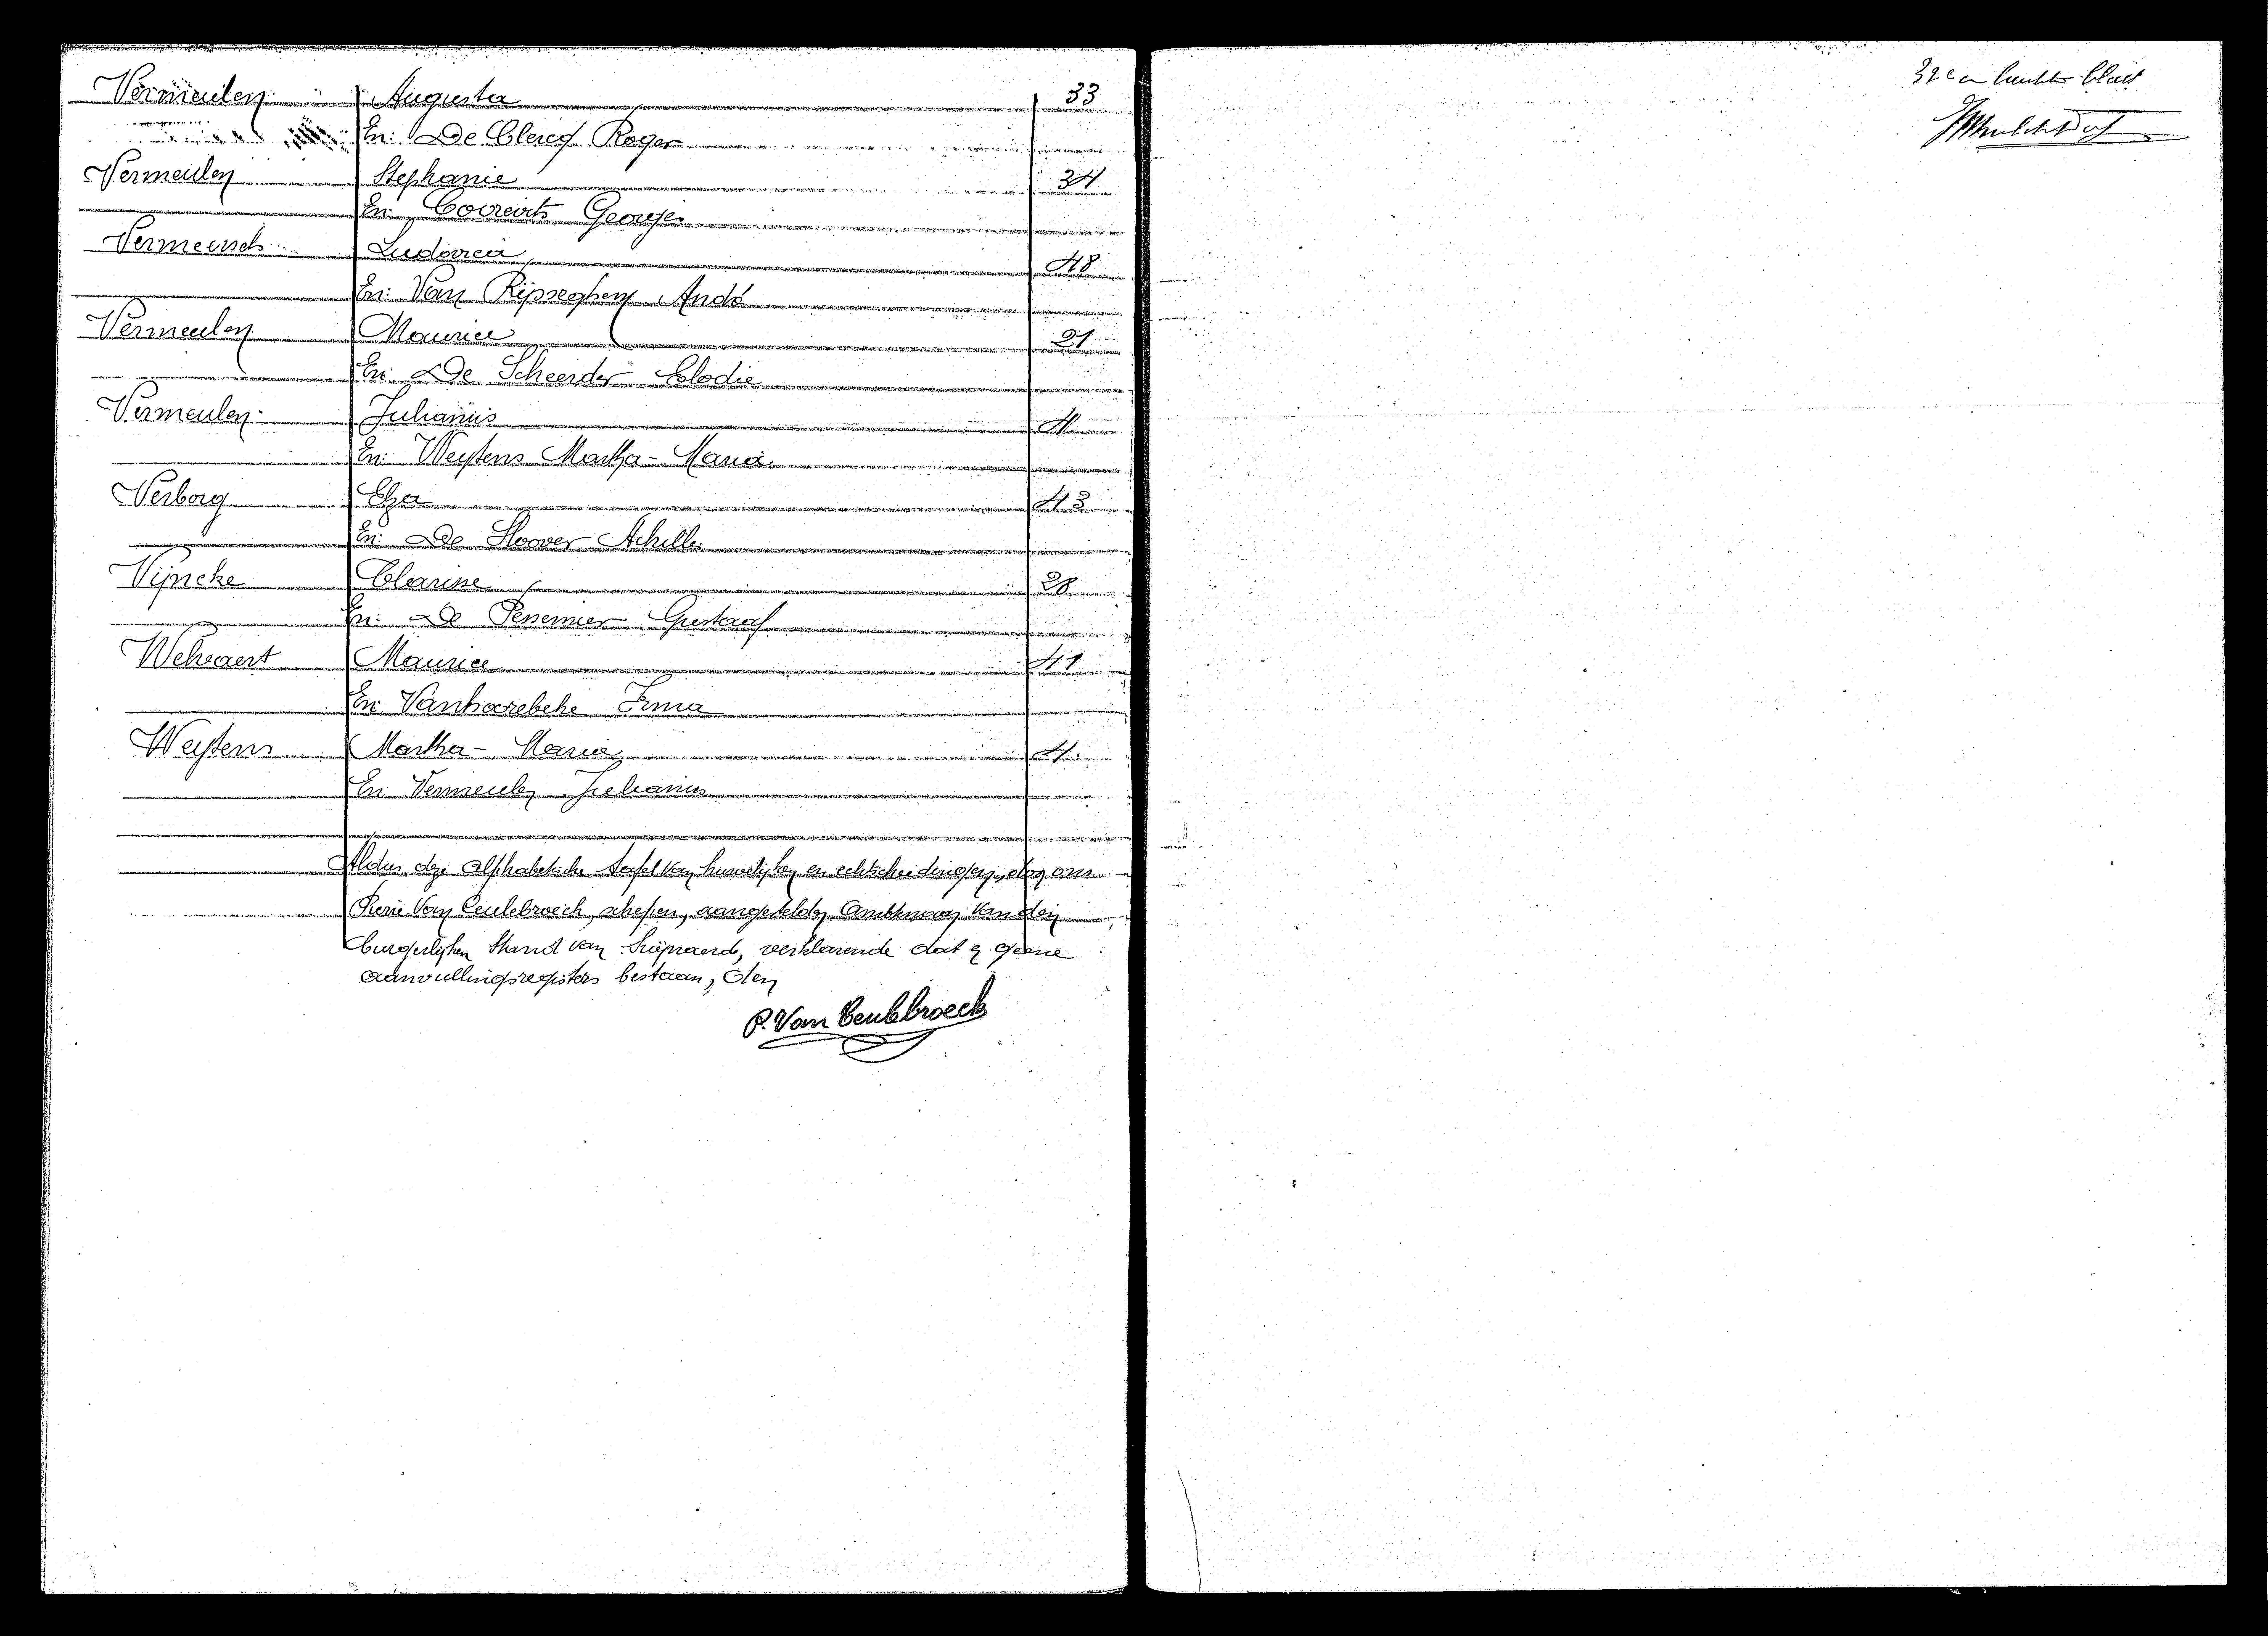 Vermeulen Augusta 33
En: De Clercq Roger
Vermeulen Stephanie 34
En: Coorevits Georges
Vermeersch Ludovica 48
En: Van Rijsseghem André
Vermeulen Maurice 21
En: De Scheerder Elodie
Vermeulen Julianus 4
En: Weytens Martha-Maria
Verborg Elza 43
En: De Hoover Achille
Vijncke Clarisse 28
En: De Pessemier Gustaaf
Welvaert Maurice 41
En: Vanhoorebeke Irma
Weytens Martha-Maria 4
En: Vermeulen Julianus
Aldus deze alphabetische tafel van huwelijken en echtscheidingen, door ons
Van Ceulebroeck, schepen, aangestelden Ambtenaar van den
burgerlijken Stand van verklarende dat er geene
aanvullingsregisters bestaan, den
P. Van Ceulebroeck
blad